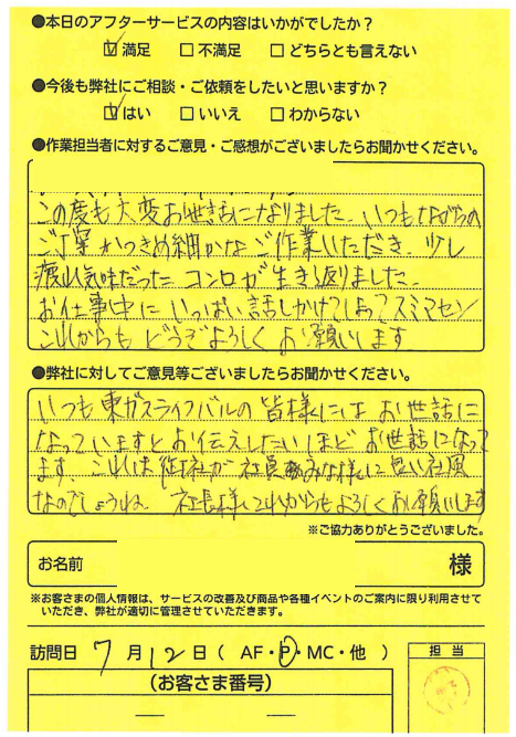 ●本日のアフターサービスの内容はいかがでしたか？
☑ 満足 □ 不満足 □ どちらとも言えない
●今後も弊社にご相談・ご依頼をしたいと思いますか？
☑ はい □ いいえ □ わからない
●作業担当者に対するご意見・ご感想がございましたらお聞かせください。
この度も大変お世話になりました。いつもながらの
ご丁寧かつきめ細かなご作業いただき、少し
疲れ気味だったコンロが生き返りました。
お仕事中にいっぱい話しかけてしまってスミマセン
これからもどうぞよろしくお願いします
●弊社に対してご意見等ございましたらお聞かせください。
いつも東ガスライフバルの皆様にはお世話に
なっていますとお伝えしたいほどお世話になって
ます。これは御社が社員みな様に良い社風
なのでしょうね。社長様これからもよろしくお願いします
※ご協力ありがとうございました。
お名前 様
※お客さまの個人情報は、サービスの改善及び商品や各種イベントのご案内に限り利用させて
いただき、弊社が適切に管理させていただきます。
訪問日 7月12日（ AF・P・MC・他 ）
担当
（お客さま番号）